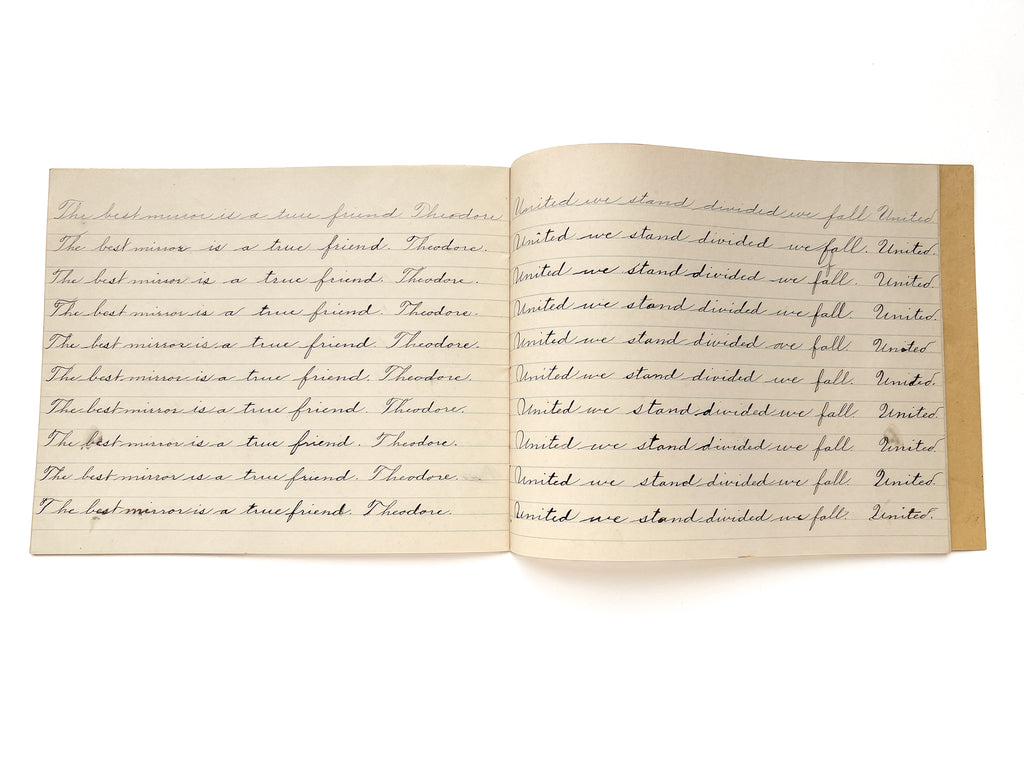 The best mirror is a true friend Theodore
The best mirror is a true friend. Theodore.
The best mirror is a true friend. Theodore.
The best mirror is a true friend. Theodore.
The best mirror is a true friend. Theodore.
The best mirror is a true friend. Theodore.
The best mirror is a true friend. Theodore.
The best mirror is a true friend. Theodore.
The best mirror is a true friend. Theodore.
The best mirror is a true friend. Theodore.
United we stand divided we fall United
United we stand divided we fall. United.
United we stand divided we fall. United.
United we stand divided we fall. United.
United we stand divided we fall. United.
United we stand divided we fall. United.
United we stand divided we fall. United.
United we stand divided we fall. United.
United we stand divided we fall. United.
United we stand divided we fall. United.